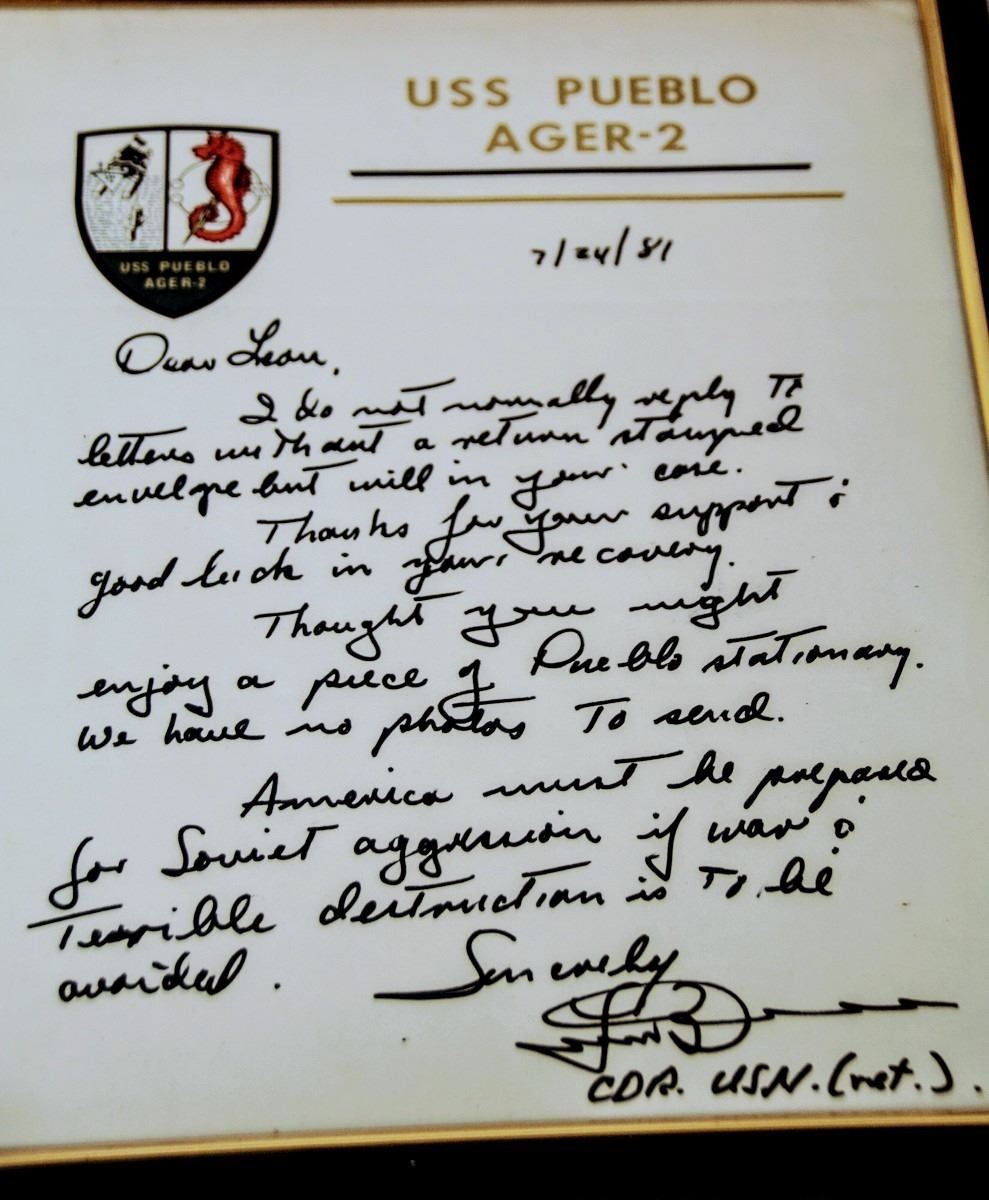 USS PUEBLO
AGER-2
USS PUEBLO
AGER-2
7/24/81
Dear Leon,
I do not normally reply to
letters without a return stamped
envelope but will in your case.
Thanks for your support &
good luck in your recovery.
Thought you might
enjoy a piece of Pueblo stationary.
We have no photos to send.
America must be prepared
for Soviet aggression if war &
terrible destruction is to be
avoided.
Sincerely
CDR. USN. (ret.).